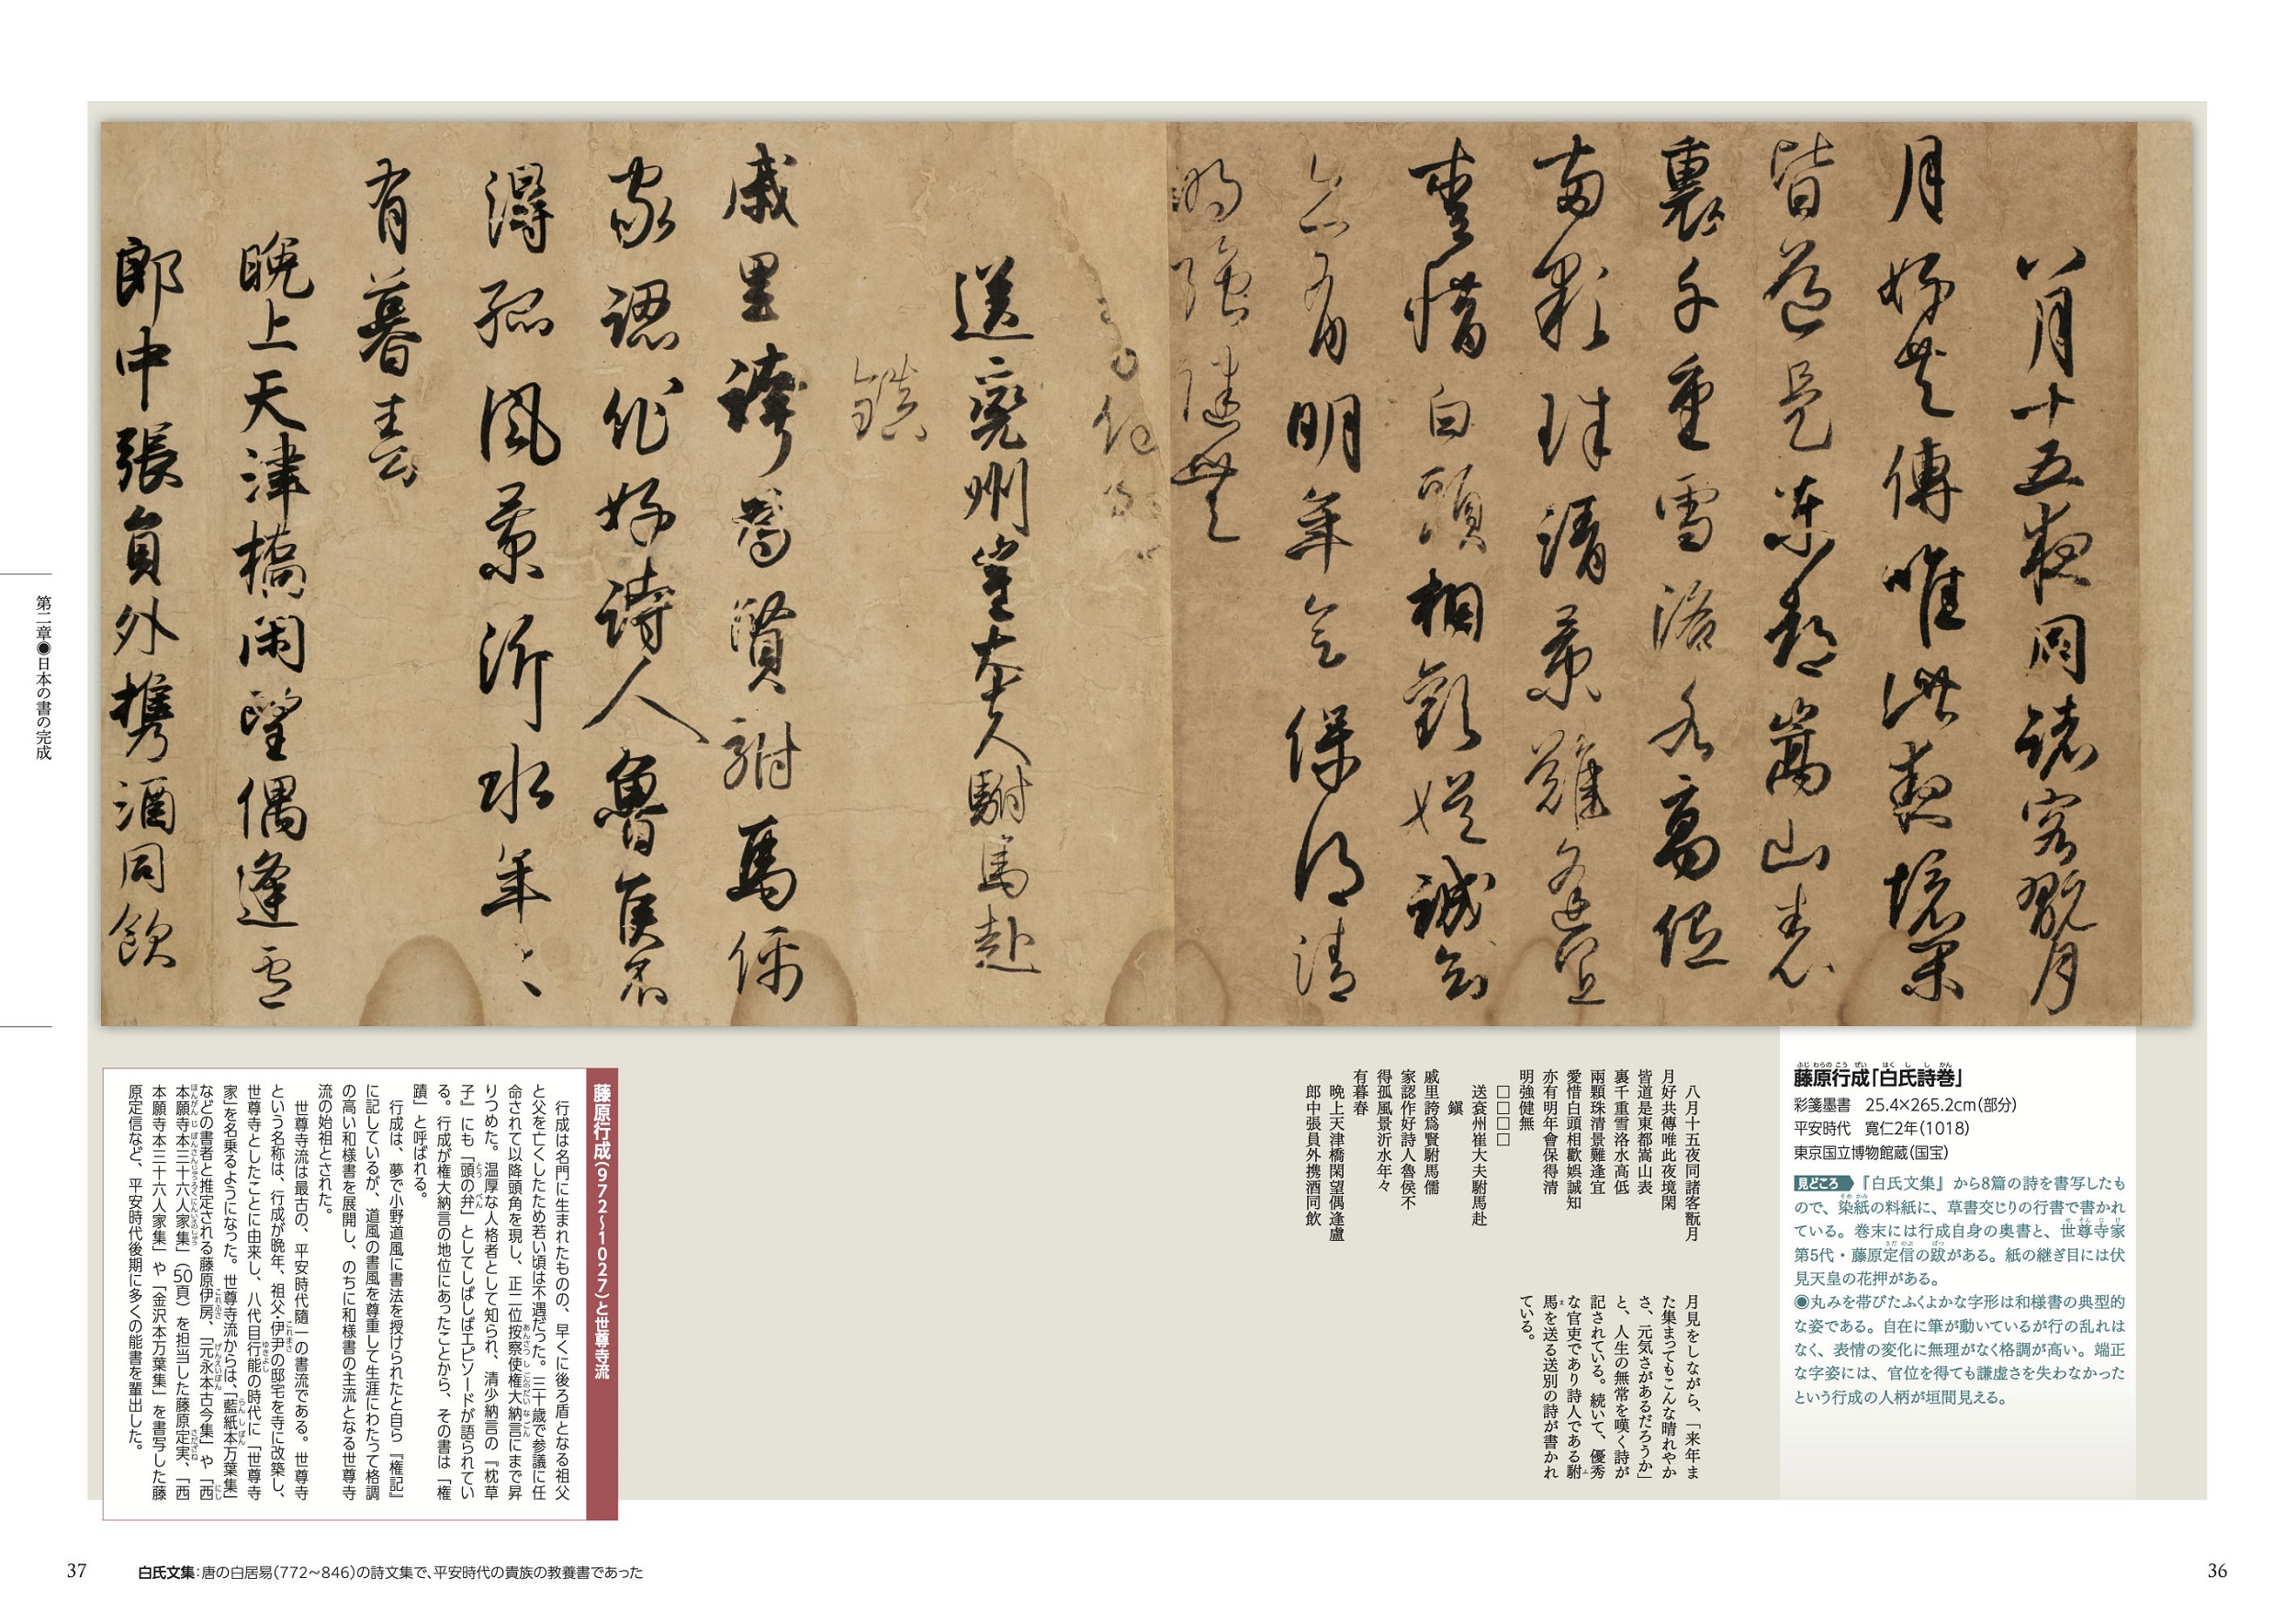 八月十五夜同諸客翫月
月好共傳唯此夜境閑
皆道是東都嵩山表
裏千重雪洛水高低
兩顆珠清景難逢宜
愛惜白頭相歡娯誠知
亦有明年會保得清
明強健無
送兗州崔大夫駙馬赴
鎮
戚里誇為賢駙馬儒
家認作好詩人魯侯不
得孤風景沂水年〻
有暮春
晩上天津橋閑望偶逢盧
郎中張員外携酒同飲
藤原行成「白氏詩巻」
ふじわらのこうぜい はくししかん
彩箋墨書 25.4×265.2cm(部分)
平安時代 寛仁2年(1018)
東京国立博物館蔵(国宝)
見どころ 『白氏文集』から8篇の詩を書写したも
ので、染紙の料紙に、草書交じりの行書で書かれ
ている。巻末には行成自身の奥書と、世尊寺家
第5代・藤原定信の跋がある。紙の継ぎ目には伏
見天皇の花押がある。
◉丸みを帯びたふくよかな字形は和様書の典型的
な姿である。自在に筆が動いているが行の乱れは
なく、表情の変化に無理がなく格調が高い。端正
な字姿には、官位を得ても謙虚さを失わなかった
という行成の人柄が垣間見える。
八月十五夜同諸客翫月
月好共傳唯此夜境閑
皆道是東都嵩山表
裏千重雪洛水高低
兩顆珠清景難逢宜
愛惜白頭相歡娯誠知
亦有明年會保得清
明強健無
□□□□
送袞州崔大夫駙馬赴
鎭
戚里誇爲賢駙馬儒
家認作好詩人魯侯不
得孤風景沂水年々
有暮春
晩上天津橋閑望偶逢盧
郎中張員外携酒同飲
月見をしながら、「来年ま
た集まってもこんな晴れやか
さ、元気さがあるだろうか」
と、人生の無常を嘆く詩が
記されている。続いて、優秀
な官吏であり詩人である駙
馬を送る送別の詩が書かれ
ている。
藤原行成(972〜1027)と世尊寺流
行成は名門に生まれたものの、早くに後ろ盾となる祖父
と父を亡くしたため若い頃は不遇だった。三十歳で参議に任
命されて以降頭角を現し、正二位按察使権大納言にまで昇
りつめた。温厚な人格者として知られ、清少納言の『枕草
子』にも「頭の弁」としてしばしばエピソードが語られてい
る。行成が権大納言の地位にあったことから、その書は「権
蹟」と呼ばれる。
行成は、夢で小野道風に書法を授けられたと自ら『権記』
に記しているが、道風の書風を尊重して生涯にわたって格調
の高い和様書を展開し、のちに和様書の主流となる世尊寺
流の始祖とされた。
世尊寺流は最古の、平安時代随一の書流である。世尊寺
という名称は、行成が晩年、祖父・伊尹の邸宅を寺に改築し、
世尊寺としたことに由来し、八代目行能の時代に「世尊寺
家」を名乗るようになった。世尊寺流からは、「藍紙本万葉集」
などの書者と推定される藤原伊房、「元永本古今集」や「西
本願寺本三十六人家集」(50頁)を担当した藤原定実、「西
本願寺本三十六人家集」や「金沢本万葉集」を書写した藤
原定信など、平安時代後期に多くの能書を輩出した。
第二章◉日本の書の完成
37
白氏文集:唐の白居易(772〜846)の詩文集で、平安時代の貴族の教養書であった
36